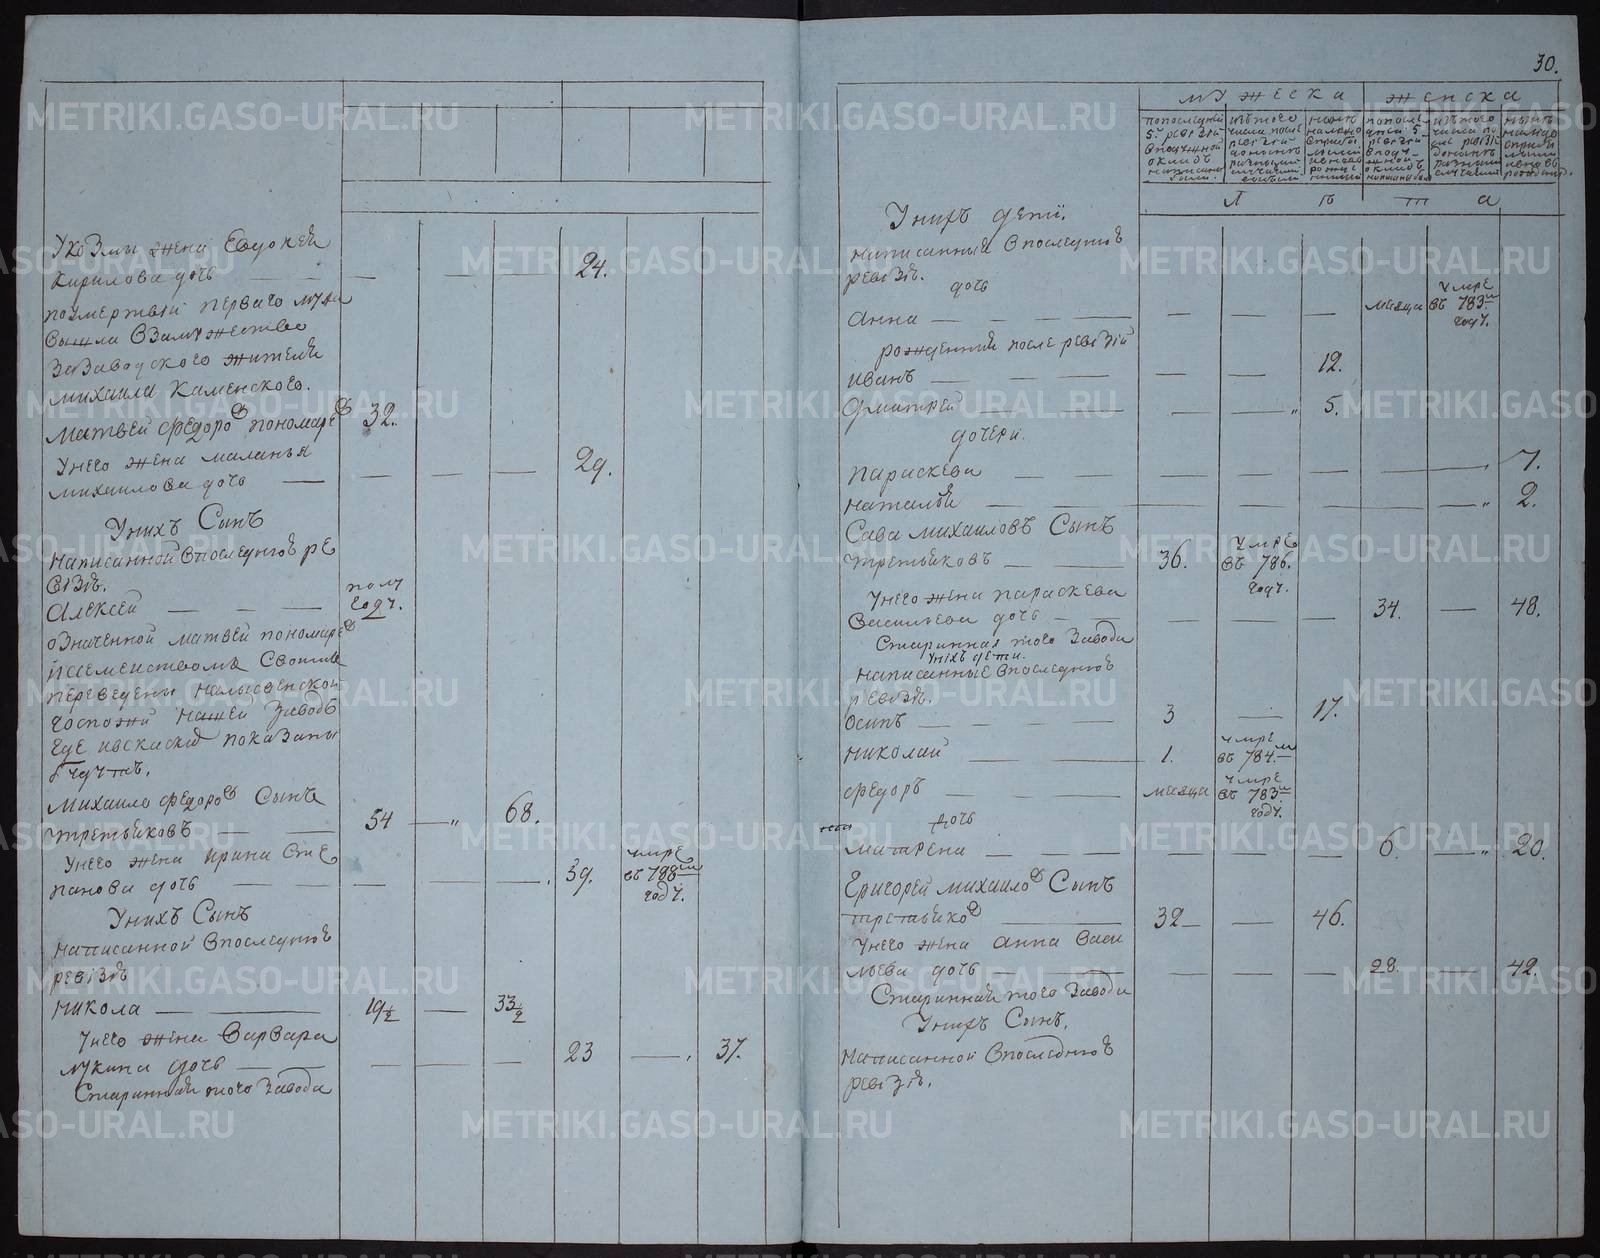 Укозмы жена Евдокея
Кирилова дочь — — — 24.
посмертвй перваго мужа
вышла взамужество
зазаводского жителя
михаила Каменского.
матвей федоров пономарев 32.
Унего жена маланья
михаилова дочь — — — — 29.
Унихъ Сынъ
написанной впоследнюю ре
визiю.
Алексей — — — полу
году.
означенной матвей пономарев
исемейством своимъ
переведены налысвенской
госпожи нашей заводъ
где
показаны
будутъ.
михайло федоров Сынъ
третьяковъ — — 54 — 68.
Унего жена ирина сте
панова дочь — — — — — 39. умре
въ 788м
году.
Унихъ Сынъ
написанной впоследнюю
ревiзiю
никола — — 19 1/2 — 33 1/2
Унего жена варвара
лукина дочь — — — — 23 — 37.
Старинная того завода
30.
мужеска женска
по последней
5й ревизiи
в подушной
окладъ
написаны
были.
изъ того
числа после
ревизiи
доныне
разными
случаями
выбыли
ныне
налицо
с прибы
лыми
и вновь
рожде
нными
по после
дней 5
ревизiи
в поду
шной
окладъ
написаны были
изъ того
числа по
сле ревизiи
доныне
разными
случаями
ныне
налицо
с прибы
лыми
и вновь
рожден.
Л ѣ т а
Унихъ дети.
написанныя впоследнюю
ревiзiю.
дочь
Анна — — — — — — — месяца умре
въ 783м
году.
рожденныя после ревiзiи
иванъ — — — — — 12.
дмитрей — — — 5.
дочери.
параскева — — — — — — — 7.
наталья — — — — — — — 2.
Сава михаиловъ Сынъ
третьяковъ — — 36. умре
въ 786.
году.
Унего жена параскева
Васильева дочь — — — — — 34. — 48.
Старинная того завода
Унихъ дети.
написанные впоследнюю
ревизiю.
осипъ — — — 3 — 17.
николай — — — 1. умре
въ 784м
федоръ — — — месяца умре
въ 783м
году.
дочь
матрена — — — — — — 6. — 20.
Григорей михайлов Сынъ
третьяков — 32 — 46.
Унего жена анна васи
льева дочь — — — — 28. — 42.
Старинная того завода
Унихъ Сынъ.
написанной впоследнюю
ревiзiю.
METRIKI.GASO-URAL.RU